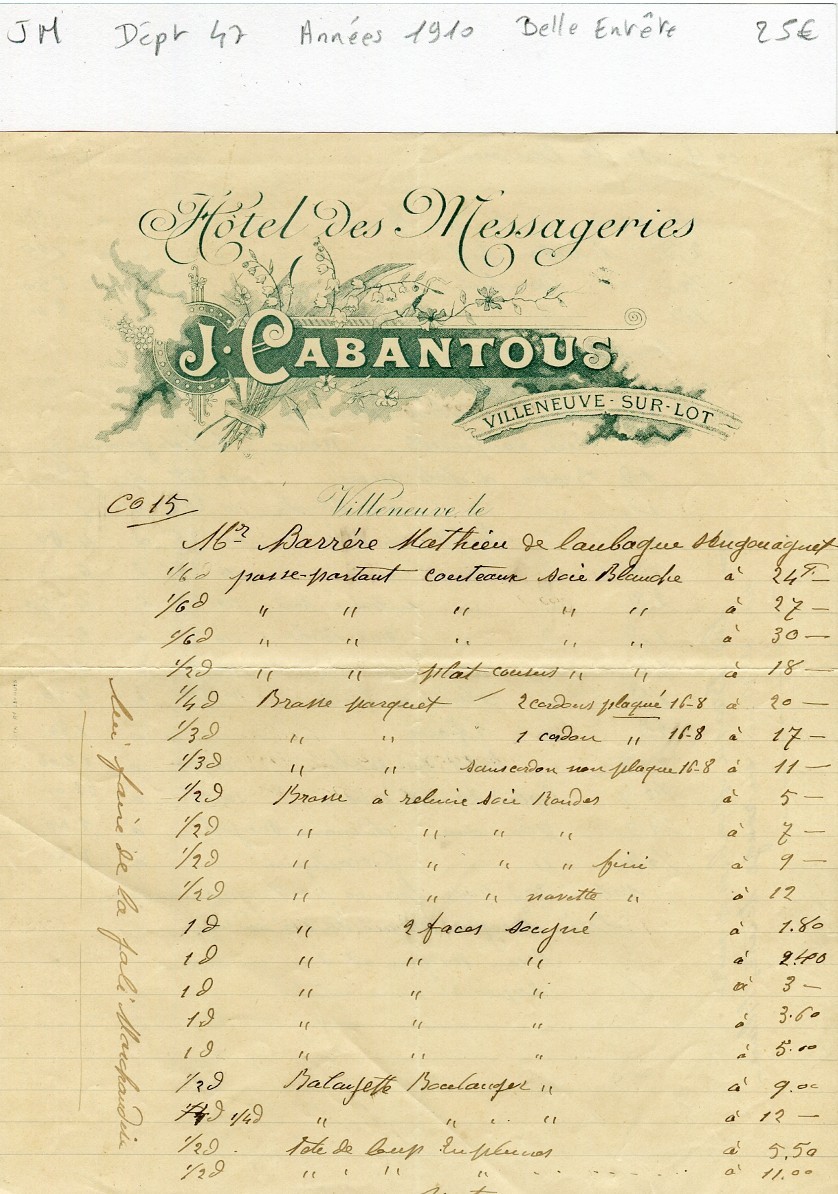 JM Dépt 47 Années 1910 Belle Entête 25€
Hôtel des Messageries
J. CABANTOUS
VILLENEUVE-SUR-LOT
CO 15
Villeneuve, le
Mr Barrére Mathieu de
1/6 d passe-partant couteaux soie Blanche à 24 F. —
1/6 d " " " " " à 27 —
1/6 d " " " " " à 30 —
1/2 d " " plat cousus " " à 18 —
1/4 d Brosse parquet 2 cordons plaqué 16-8 à 20 —
1/3 d " " " 1 cordon " 16-8 à 17 —
1/3 d " " sans cordon non plaque 16-8 à 11 —
1/2 d Brosse à reluire soie Rondes à 5 —
1/2 d " " " " à 7 —
1/2 d " " " " fini à 9 —
1/2 d " " " navette " à 12
1 d " 2 faces soigné à 1.80
1 d " " " à 2.40
1 d " " " à 3 —
1 d " " " à 3.60
1 d " " " à 5.00
1/2 d Balayette Boulanger " à 9.00
1/4 d " " " " à 12 —
1/2 d tete de loup En plumes à 5,50
1/2 d " " " " à 11.00
faire de la joli Marchandise